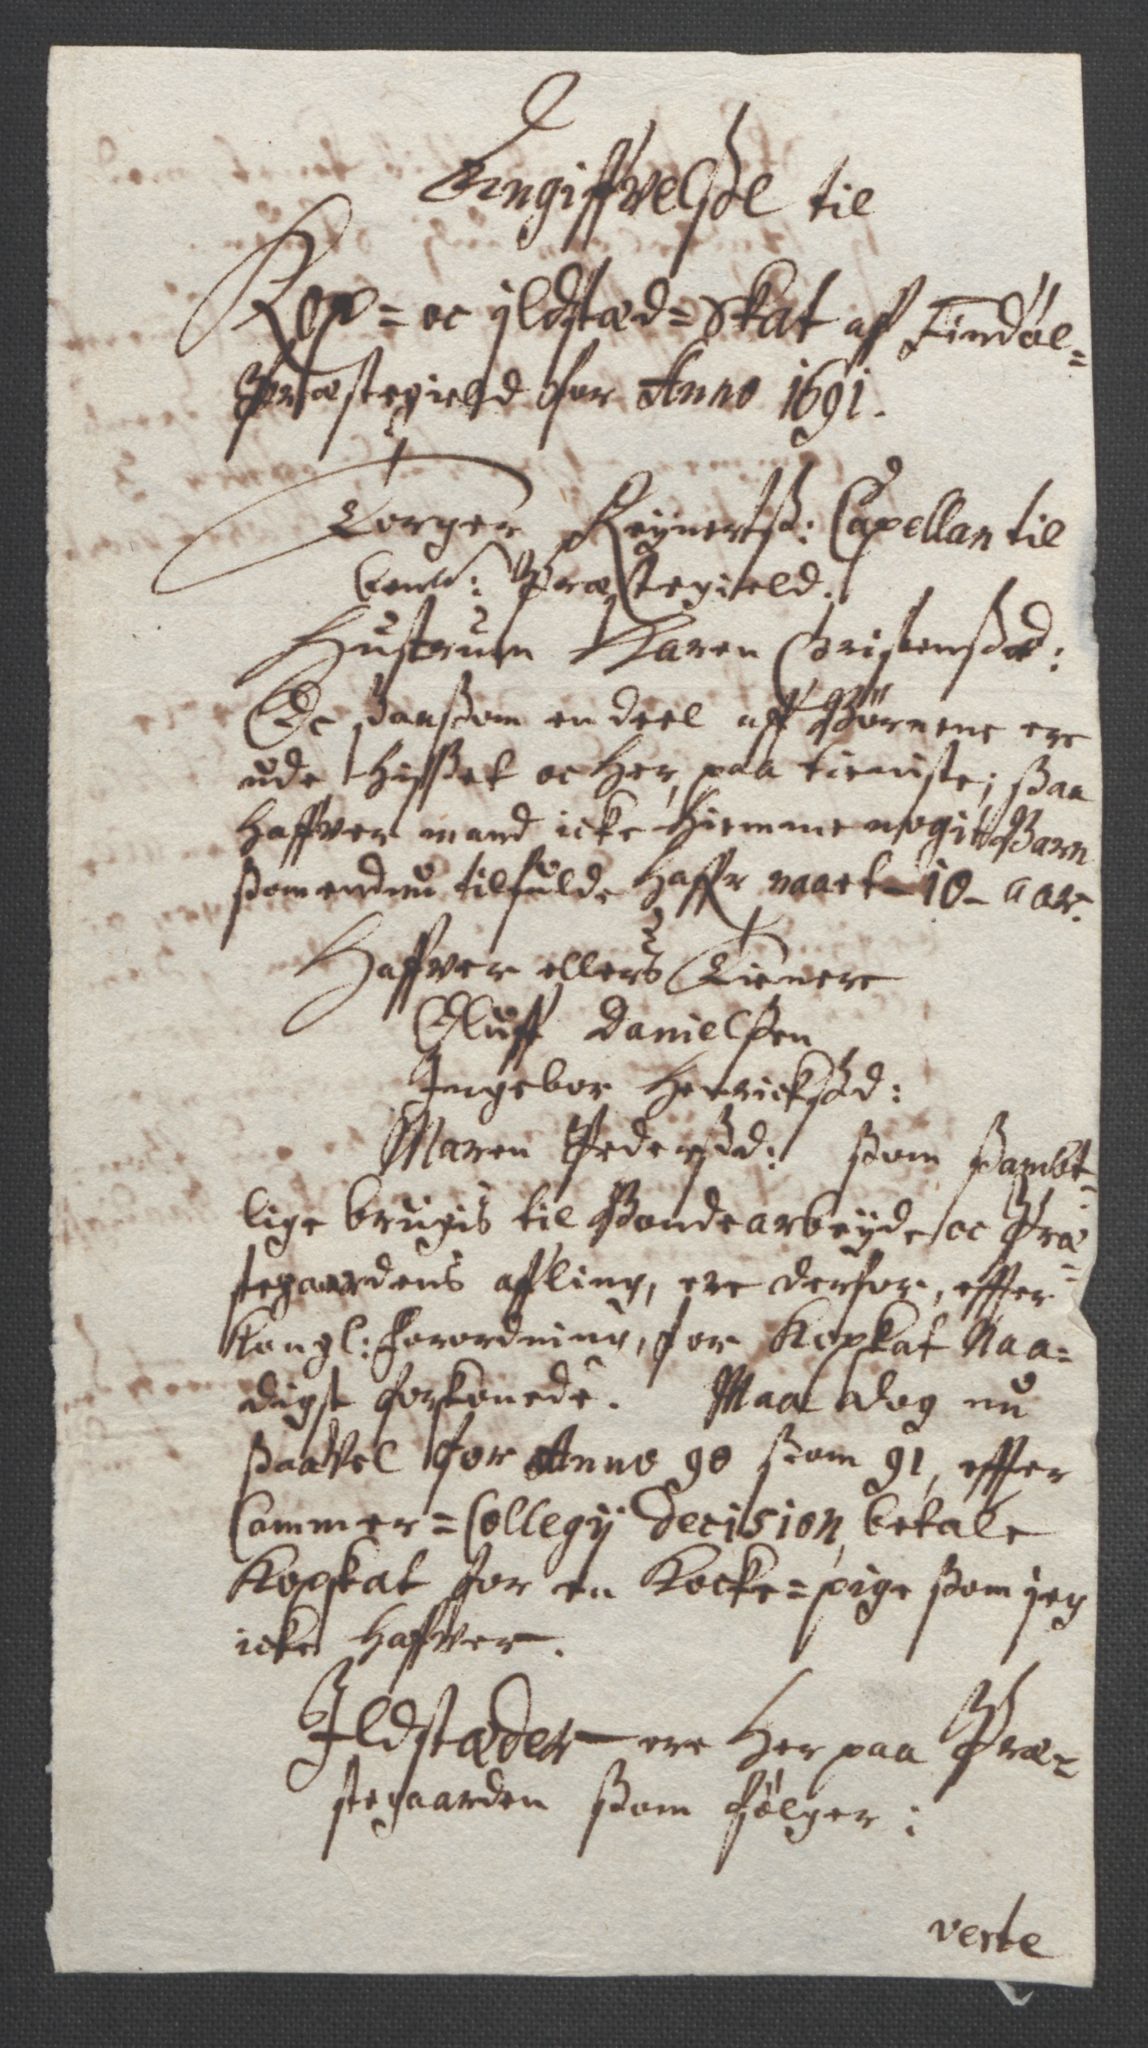 Angiffvelße til
Kop= oc yldstæd= Skat aff Tindøl=
Præstegield for Anno 1691.
Torger Reynertß: Capellan til
bemt: Præstegield.
Hustrum Karen Christensßd:
Oc saaßom en deel aff Børnene ere
ude hißet oc her paa tieniste; ßaa
haffver mand icke hiemme nogit Barn
ßom endnu tilfulde haffr naaet 10 aar.
Haffver ellers Tienere
Oluff Danielßen
Ingebor Henricksßd:
Maren Pedersßd: ßom ßambt=
lige brugis til Bondearbeyde oc Præ=
stegaardens affling, ere derfor, effter
Kongl: Forordning, for Kopskat Naa=
digst forskonede. Maa dog nu
ßaavel for Anno 90 ßom 91, effter
Cammer=Collegij Decision, betale
Kopskat for en Kocke=pige ßom jeg
icke haffver.
Ildstæder ere her paa Præ=
stegaarden ßom følger:
verte